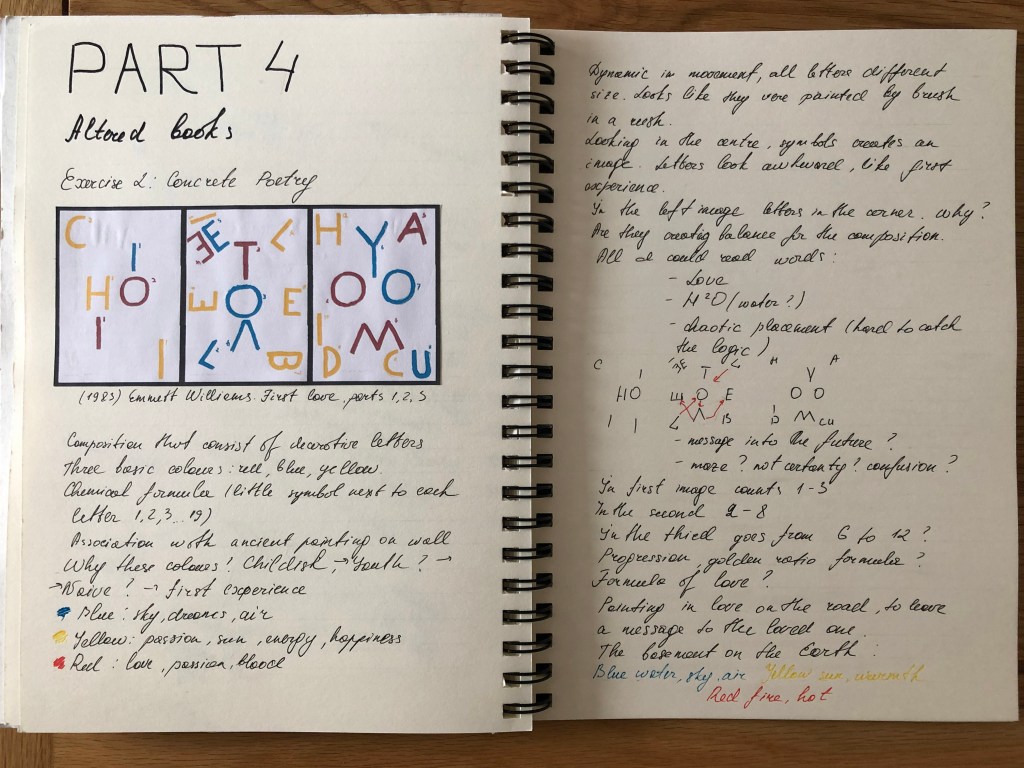 PART 4
Altered books
Exercise 2: Concrete Poetry
C
I
H O
I
I
E E T L
E O E
L V B
H Y A
O O
I M
D C U
(1983) Emmett Williams. First love, parts 1, 2, 3
Composition that consist of decorotive letters
Three basic colours: red, blue, yellow.
Chemical formulea (little symbol next to each
letter 1, 2, 3 ... 19)
Association woth ancient painting on wall
Why these colours? Childish, → Youth? →
→ Naive? → first experience
Blue: sky, dreams, air
Yellow: passion, sun, energy, happiness
Red: love, passion, blood
Dynamic in movement, all letters different
size. Looks like they were painted by brush
in a rush.
Looking in the centre, symbols creates an
image. Letters look awkward, like first
experience.
In the left image letters in the corner. why?
Are they creating balance for the composition.
All I could read words:
- Love
- H²O (water?)
- chaotic placement (hard to catch
the logic)
C I T L H Y A
HO E O E O O
I I L B I D M CU
- message into the future?
- maze? not certanty? confusion?
In first image counts 1-5
In the second 2-8
In the third goes from 6 to 12?
Progression, golden ratio formula?
Formula of love?
Painting in love on the road, to leave
a message to the loved one.
The basement on the Earth:
Blue water, sky, air Yellow sun, warmth
Red fire, hot